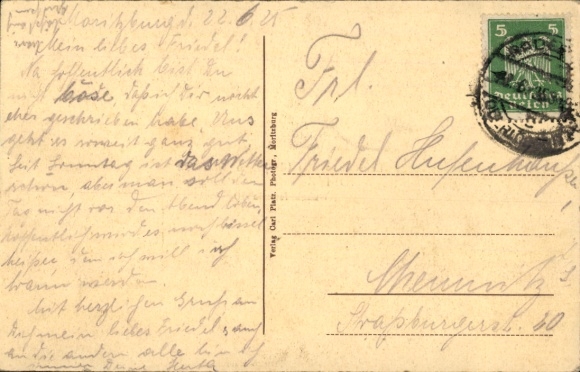 Moritzburg d. 22.6.25
Mein liebes Friedel!
Na hoffentlich bist du
nicht böse, daß ich dir nicht
eher geschrieben habe. Uns
geht es soweit ganz gut.
Seit Sonntag ist das Wetter
schon, aber man soll den
Tag nicht vor den Abend loben,
hoffentlich wird es noch bissel
heißer, denn ich will ich
braun werden.
Mit herzlichen Gruß an
Dich mein liebes Friedel, auch
an die andern alle bin ich
immer Deine Herta
Verlag Carl Platz, Photogr., Moritzburg
5 5
Deutsches
Reich
Frl.
Friedel Hufenhäuser
Chemnitz
Straßburgerst. 20